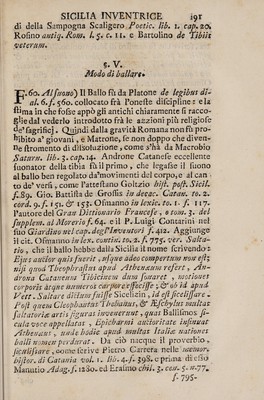 SICILIA INVENTRICE 191
di della Sampogna Scaligero Poetic. lib. 1. cap. 20.
Rosino antiq. Rom. l. 5. c. 11. e Bartolino de Tibiis
veterum.
§. V.
Modo di ballare.
F. 60. Al fuono) Il Ballo fù da Platone de legibus di-
al. 6. f. 560. collocato frà l'oneste discipline: e la
stima in che fosse appò gli antichi chiaramente si racco-
glie dal vederlo introdotto frà le azzioni più religiose
de' sagrificj. Quindi dalla gravità Romana non fù pro-
ibito a' giovani, e Matrone, se non doppo che diven-
ne stromento di dissoluzione, come s'hà da Macrobio
Saturn. lib. 3. cap. 14. Androne Catanese eccellente
suonator della tibia fù il primo, che legasse il suono
al ballo ben regolato da'movimenti del corpo, e al can
to de' versi, come l'attestano Goltzio hist. post. Sicil.
f. 89. Gio. Battista de Grossis in decac. Catan. to. 2.
cord. 9. f. 151. & 153. Ofmanno in lexic. to. 1. f. 117.
l'autore del Gran Ditionario Francese, e tom. 3. del
supplem. al Morerio f. 64. e il P. Luigi Contarini nel
suo Giardino nel cap. degl'Inventori f. 412. Aggiunge
il cit. Ofmanno in lex. contin. to. 2. f. 775. ver. Salta-
tio, che il ballo hebbe dalla Sicilia il nome scrivendo:
Ejus autor quis fuerit, usque adeo compertum non est;
nisi quod Theophrastus apud Athenæum refert, An-
drona Catanensem Tibicinem dum sonaret, motiones
corporis atque numeros corpore effecisse; & ob id apud
Vet. Saltare dictum fuisse Sicelizin, id est sicelissare.
Post quem Cleophantus Thebanus, & Æschylus multas
saltatoriæ artis figuras invenerunt, quas Ballismos si-
cula voce appellatas, Epicharmi autoritate insinuat
Athenæus, unde hodie apud multas Italiæ nationes
balli nomen perdurat. Da ciò nacque il proverbio,
siculissare, come scrive Pietro Carrera nelle memor.
histor. di Catania vol. 1. lib. 4. f. 398. e prima di esso
Manutio Adag. f. 1280. ed Erasmo chil. 3. cen. 5. n. 77.
f. 795.